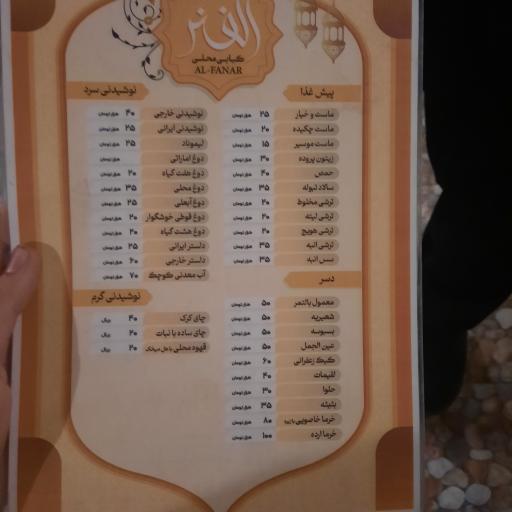 الفنر
کبابی محلی
AL-FANAR
پیش غذا
ماست و خیار ۲۵ هزار تومان
ماست چکیده ۲۰ هزار تومان
ماست موسیر ۱۵ هزار تومان
زیتون پرورده ۳۰ هزار تومان
حمص ۴۰ هزار تومان
سالاد تبوله ۳۵ هزار تومان
ترشی مخلوط ۲۰ هزار تومان
ترشی لیته ۲۰ هزار تومان
ترشی هویج ۲۰ هزار تومان
ترشی انبه ۳۵ هزار تومان
سس انبه ۳۵ هزار تومان
دسر
معمول بالتمر ۵۰ هزار تومان
شعیریه ۵۰ هزار تومان
بسبوسه ۵۰ هزار تومان
عین الجمل ۵۰ هزار تومان
کیک زعفرانی ۶۰ هزار تومان
لقیمات ۴۰ هزار تومان
حلوا ۳۰ هزار تومان
۳۵ هزار تومان
خرما خاصویی با ارده ۸۰ هزار تومان
خرما ارده ۱۰۰ هزار تومان
نوشیدنی سرد
نوشیدنی خارجی ۴۰ هزار تومان
نوشیدنی ایرانی ۲۵ هزار تومان
لیموناد ۲۵ هزار تومان
دوغ اماراتی هزار تومان
دوغ هفت گیاه ۲۰ هزار تومان
دوغ محلی ۳۵ هزار تومان
دوغ آبعلی ۲۵ هزار تومان
دوغ قوطی خوشگوار ۲۰ هزار تومان
دوغ هشت گیاه ۲۰ هزار تومان
دلستر ایرانی ۲۵ هزار تومان
دلستر خارجی ۶۰ هزار تومان
آب معدنی کوچک ۷۰ هزار تومان
نوشیدنی گرم
چای کرک ۴۰ ریال
چای ساده با نبات ۲۰ ریال
قهوه محلی با هل میخک ۲۰ ریال